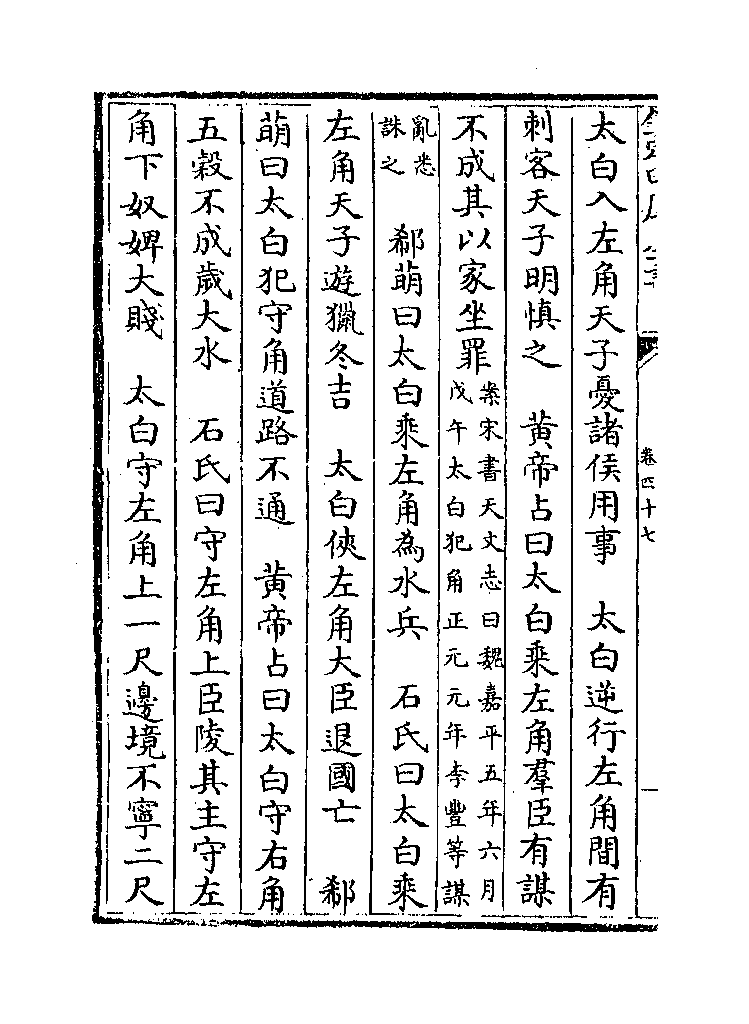 卷四十七
太白入左角天子憂諸侯用事　太白逆行左角間有
刺客天子明慎之　黄帝占曰太白乘左角羣臣有謀
不成其以家坐罪案宋書天文志曰魏嘉平五年六月
戊午太白犯角正元元年李豐等謀
亂悉
誅之　郗萌曰太白乘左角為水兵　石氏曰太白乘
左角天子遊獵冬吉　太白俠左角大臣退國亡　郗
萌曰太白犯守角道路不通　黄帝占曰太白守右角
五穀不成歲大水　石氏曰守左角上臣陵其主守左
角下奴婢大賤　太白守左角上一尺邊境不寧二尺